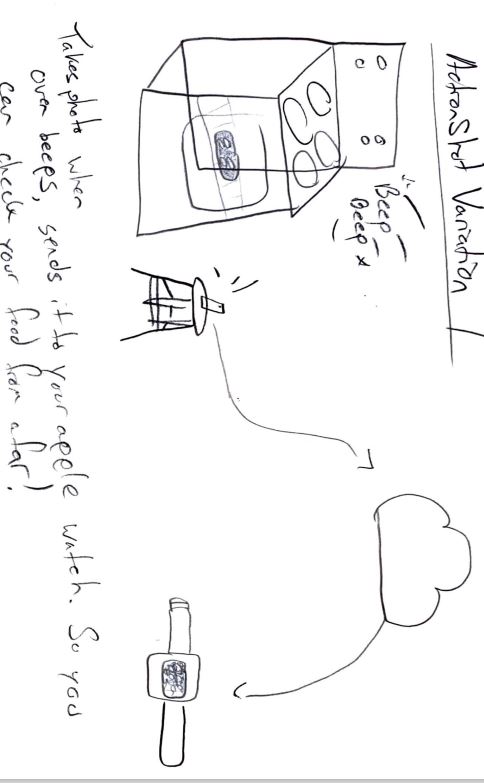 ActionShot Variation 1
Beep
Beep
Takes photo when
oven beeps, sends it to your apple watch. So you
can check your food from afar!